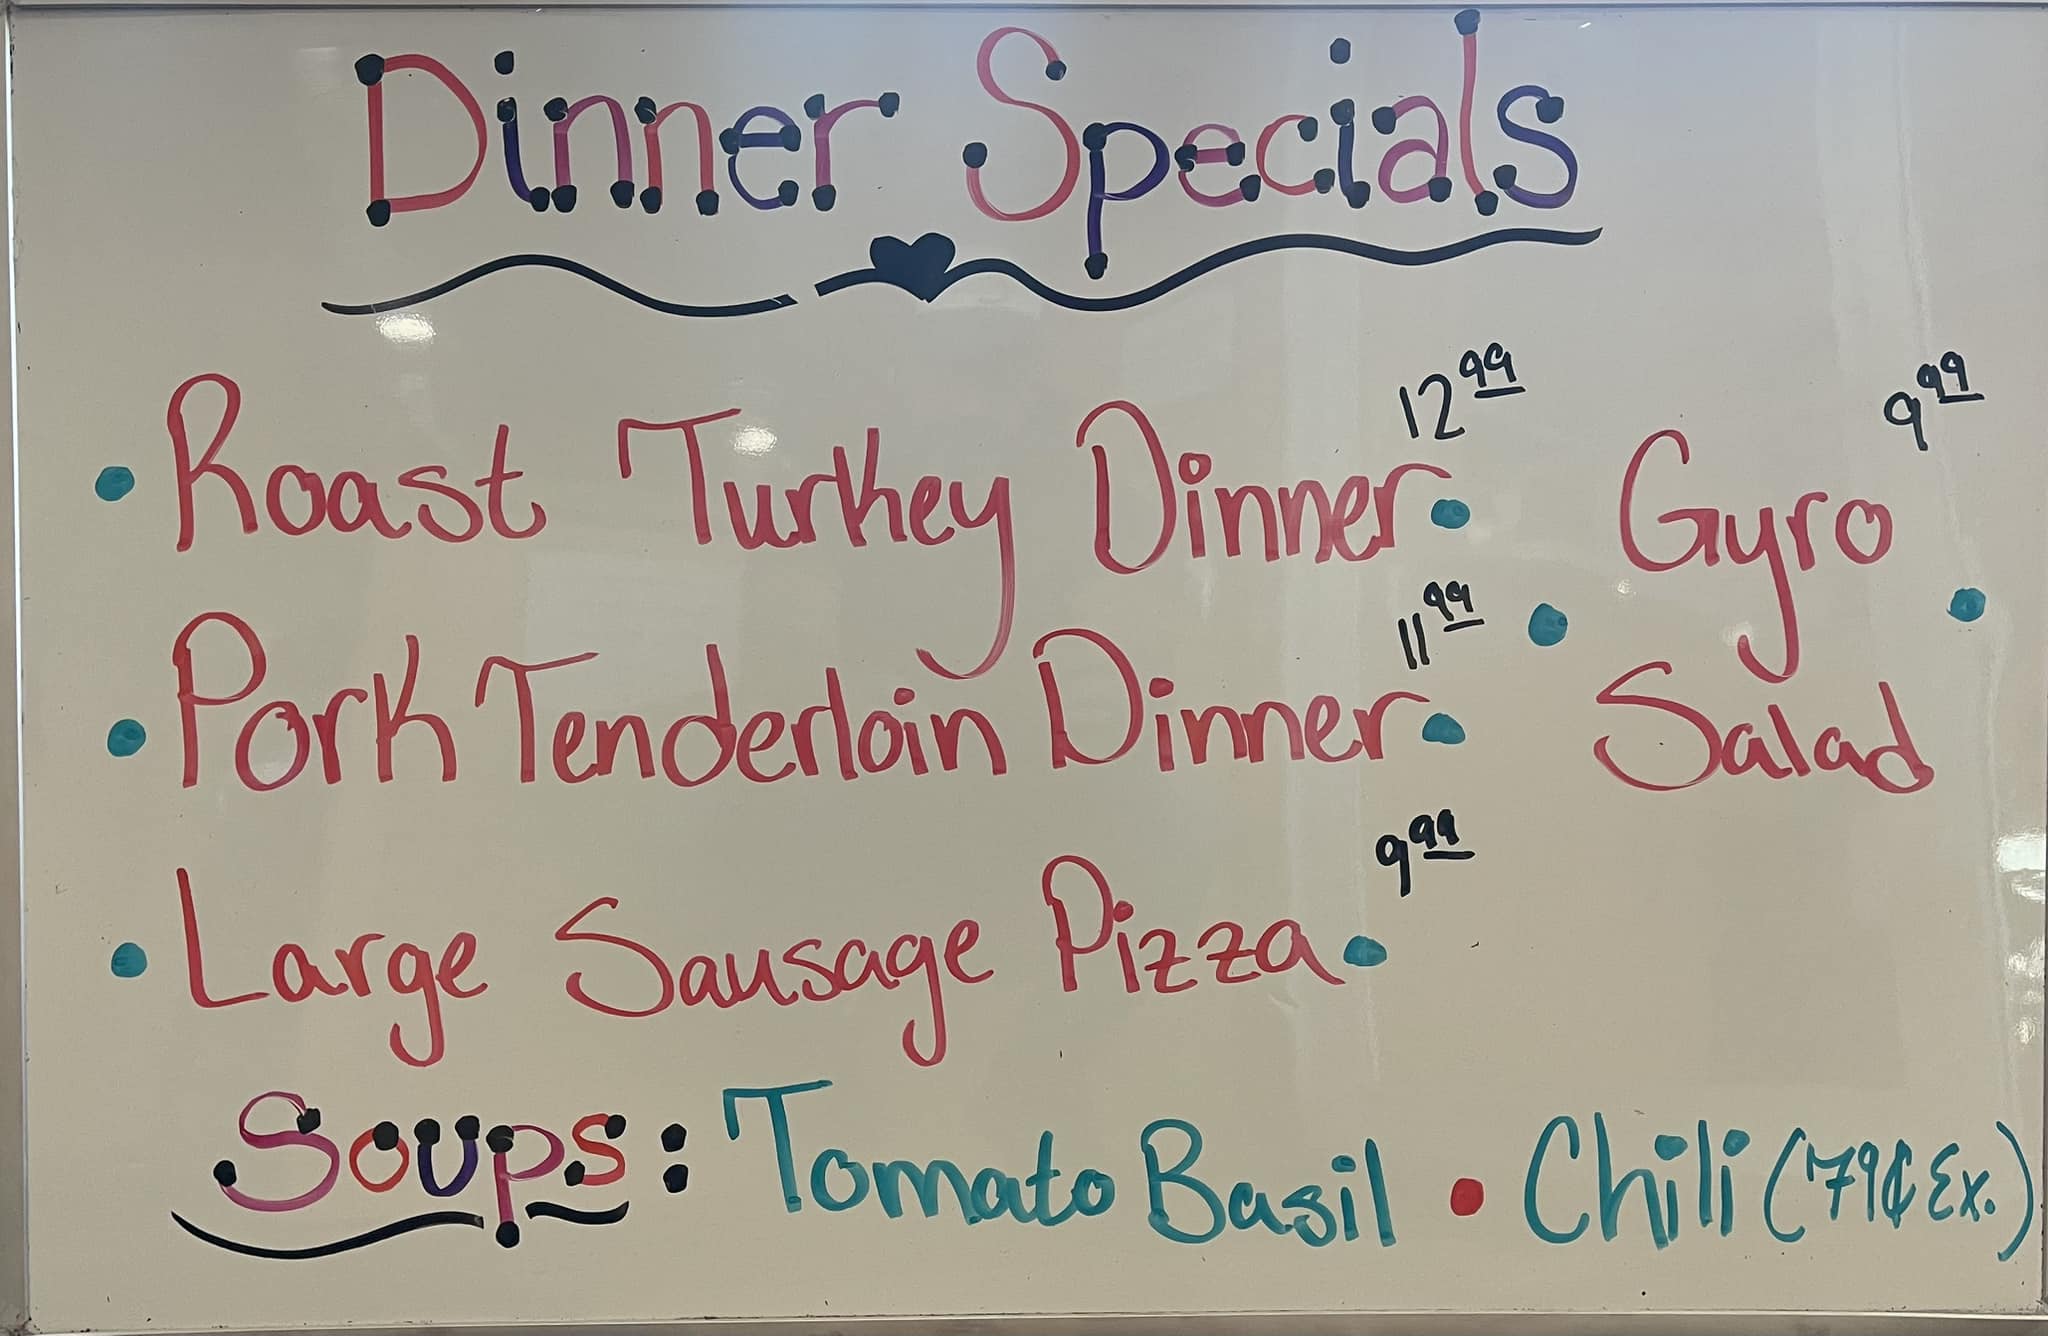 Dinner Specials
• Roast Turkey Dinner • 12 99
• Pork Tenderloin Dinner • 11 99
• Large Sausage Pizza • 9 99
• Gyro 9 99
Salad •
Soups: Tomato Basil • Chili (79¢ Ex.)